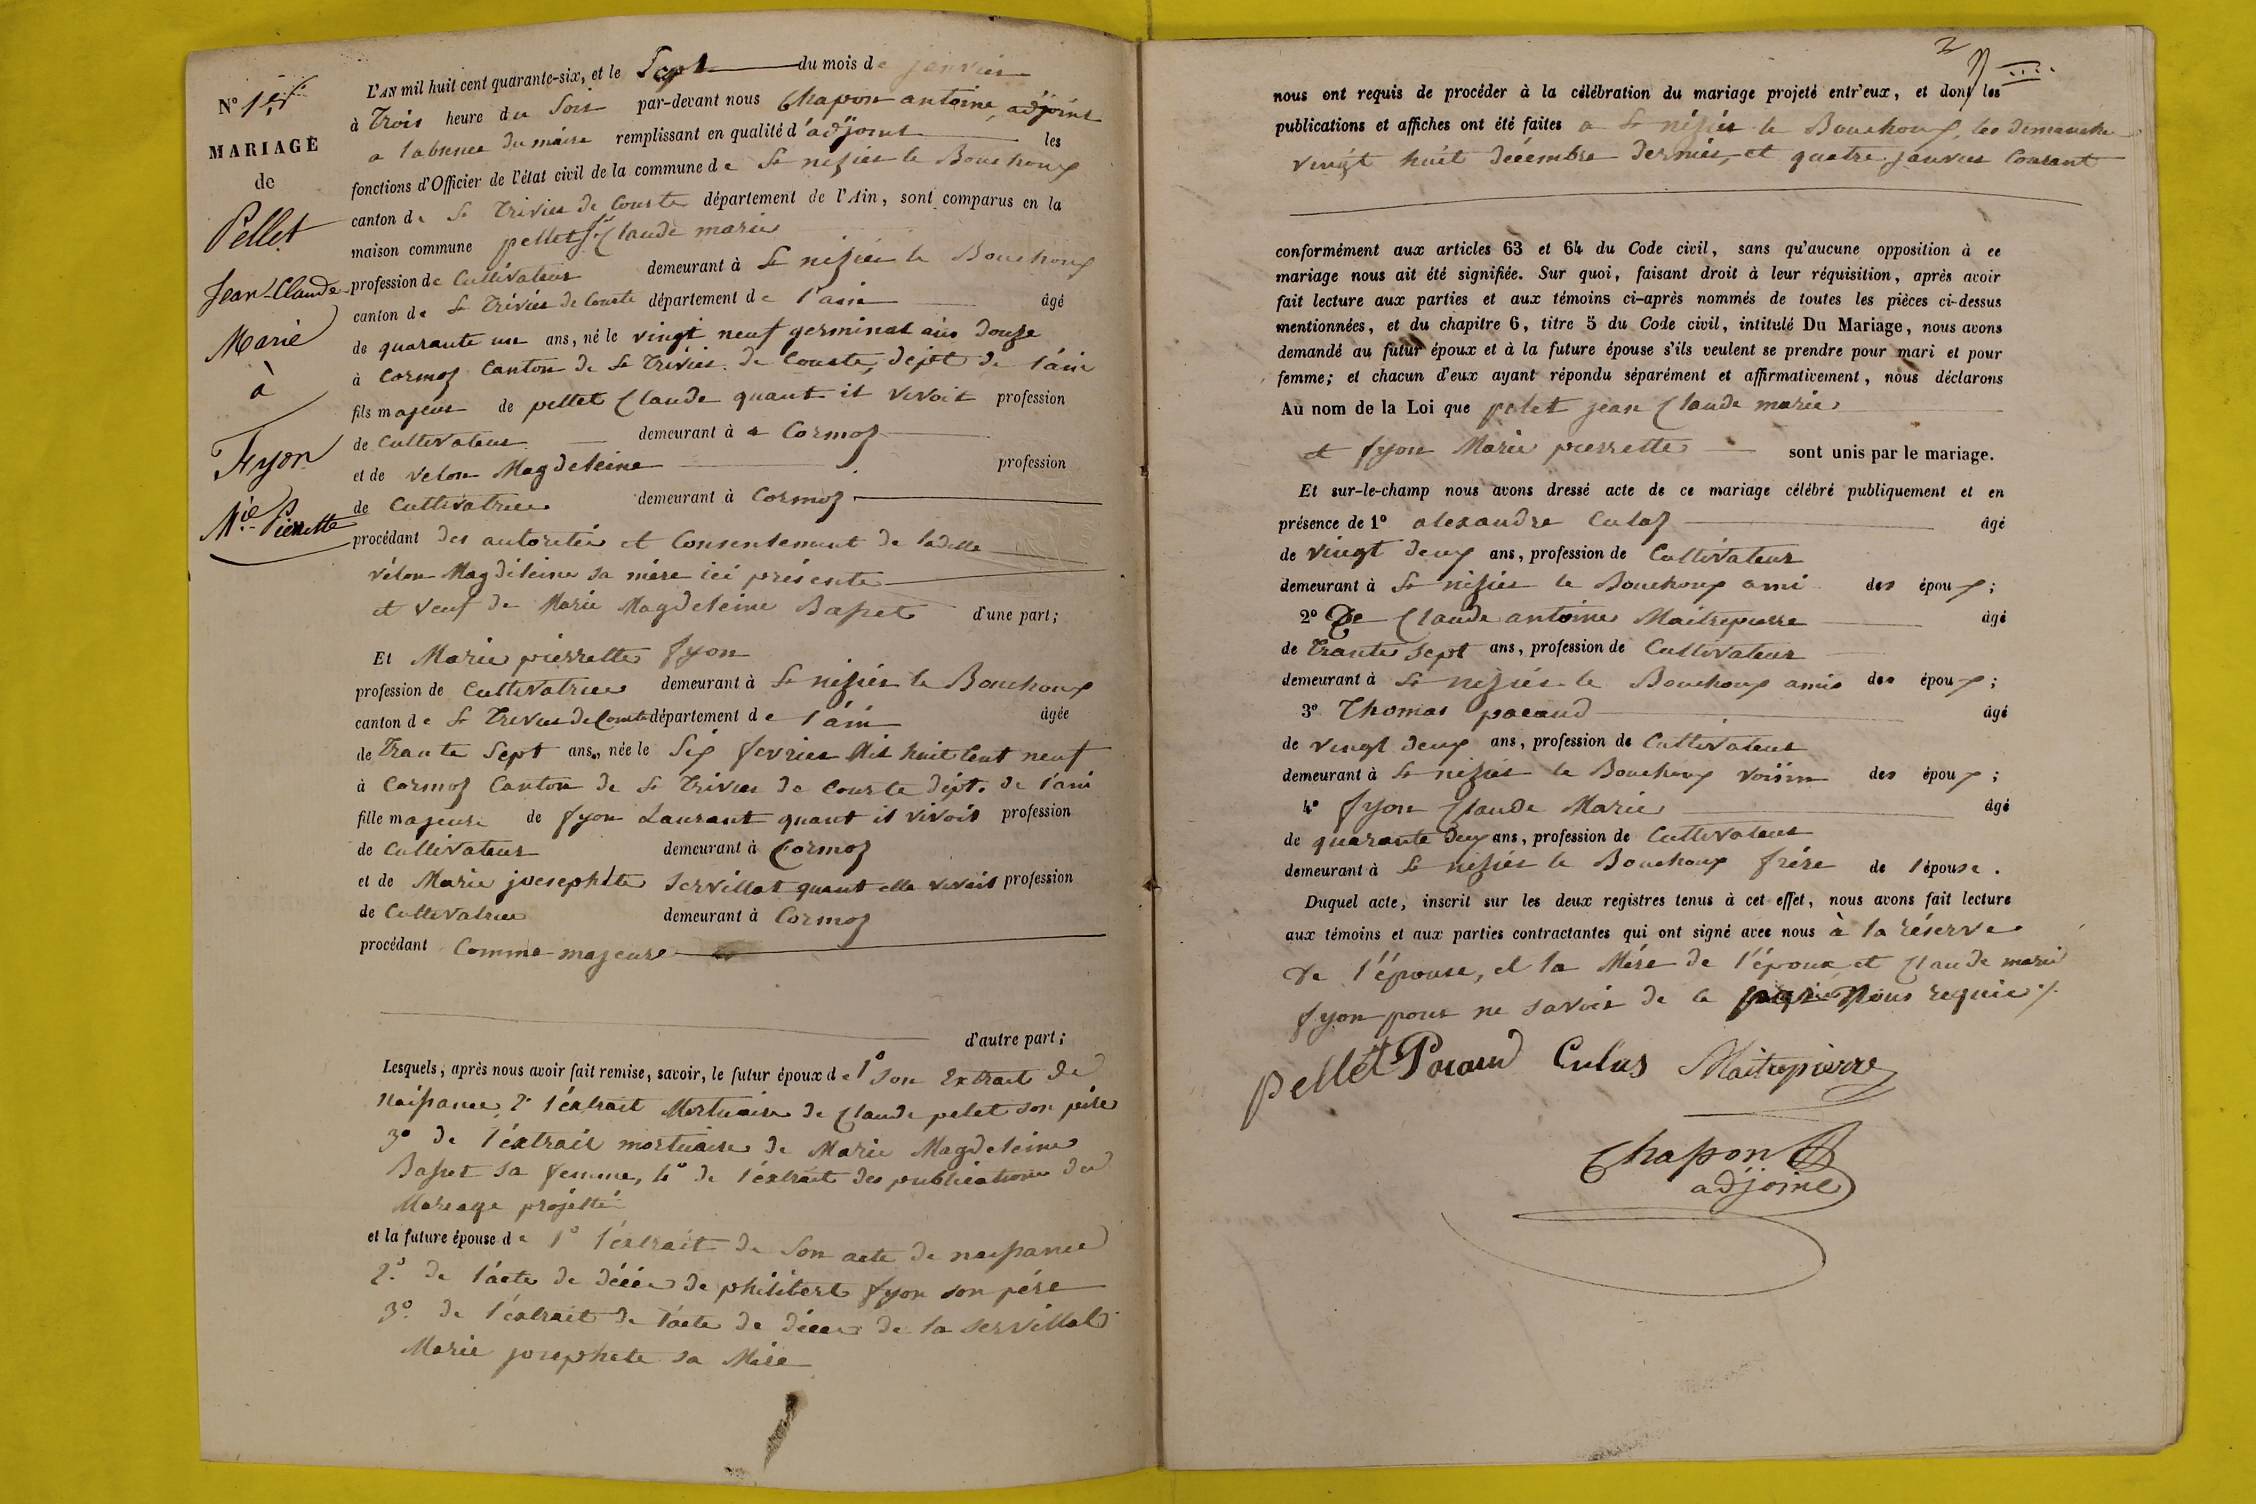 N° 1er
MARIAGE
de
Pellet
Jean-Claude
Marie
à
Fyon
Mie Pierrette
L'AN mil huit cent quarante-six, et le Sept du mois de janvier
à Trois heure du Soir par-devant nous Chapon antoine, adjoint
a l'absence du maire remplissant en qualité d'adjoint les
fonctions d'Officier de l'état civil de la commune de St nizier le Bouchoux
canton de St Trivier de Courte département de l'Ain, sont comparus en la
maison commune pellet Claude marie
profession de Cultivateur demeurant à St nizier le Bouchoux
canton de St Trivier de Courte département de l'ain âgé
de quarante un ans, né le vingt neuf germinal an douze
à Cormoz Canton de St Trivier de Courte, dépt de l'ain
fils majeur de pellet Claude quant il vivoit profession
de Cultivateur demeurant à a Cormoz
et de velon Magdeleine profession
de Cultivatrice demeurant à Cormoz
procédant des autorités et Consentement de ladite
vélon Magdeleine sa mère ici présente
et veuf de Marie Magdeleine Basset d'une part;
Et Marie pierrette fyon
profession de Cultivatrice demeurant à St nizier le Bouchoux
canton de St Trivier de Courte département de l'ain âgée
de Trante Sept ans, née le Six fevrier Mil huit Cent neuf
à Cormoz Canton de St Trivier de Courte dépt. de l'ain
fille majeure de fyon Laurant quant il vivoit profession
de Cultivateur demeurant à Cormoz
et de Marie josephte Servillat quant elle vivoit profession
de Cultivatrice demeurant à Cormoz
procédant Comme majeure
d'autre part;
Lesquels, après nous avoir fait remise, savoir, le futur époux de 1° son Extrait de
Naissance, 2° l'éxtrait Mortuaire de Claude pelet son père
3° de l'éxtrait mortuaire de Marie Magdeleine
Basset sa femme, 4° de l'éxtrait des publications du
Mariage projetté
et la future épouse de 1° l'éxtrait de Son acte de naissance
2° de l'acte de décés de philibert fyon son pére
3° de l'éxtrait de l'acte de décés de la servillat
Marie josephete sa Mère
2
nous ont requis de procéder à la célébration du mariage projeté entr'eux, et dont les
publications et affiches ont été faites a St nizier le Bouchoux, les dimanche
vingt huit décembre dernier, et quatre janvier Courant
conformément aux articles 63 et 64 du Code civil, sans qu'aucune opposition à ce
mariage nous ait été signifiée. Sur quoi, faisant droit à leur réquisition, après avoir
fait lecture aux parties et aux témoins ci-après nommés de toutes les pièces ci-dessus
mentionnées, et du chapitre 6, titre 5 du Code civil, intitulé Du Mariage, nous avons
demandé au futur époux et à la future épouse s'ils veulent se prendre pour mari et pour
femme; et chacun d'eux ayant répondu séparément et affirmativement, nous déclarons
Au nom de la Loi que pelet jean Claude marie
et fyon Marie pierrette sont unis par le mariage.
Et sur-le-champ nous avons dressé acte de ce mariage célébré publiquement et en
présence de 1° alexandre Culaz âgé
de vingt deux ans, profession de Cultivateur
demeurant à St nizier le Bouchoux ami des époux;
2° De Claude antoine Maitrepierre âgé
de Trante Sept ans, profession de Cultivateur
demeurant à St nizier le Bouchoux amis des époux;
3° Thomas pacaud âgé
de vingt deux ans, profession de Cultivateur
demeurant à St nizier le Bouchoux voisin des époux;
4° fyon Claude Marie âgé
de quarante deux ans, profession de Cultivateur
demeurant à St nizier le Bouchoux frére de l'épouse.
Duquel acte, inscrit sur les deux registres tenus à cet effet, nous avons fait lecture
aux témoins et aux parties contractantes qui ont signé avec nous à la réserve
de l'épouse, et la Mére de l'époux et Claude marie
fyon pour ne savoir de ce nous requis
pellet Pacaud Culas Maitrepierre
Chapon A
adjoint